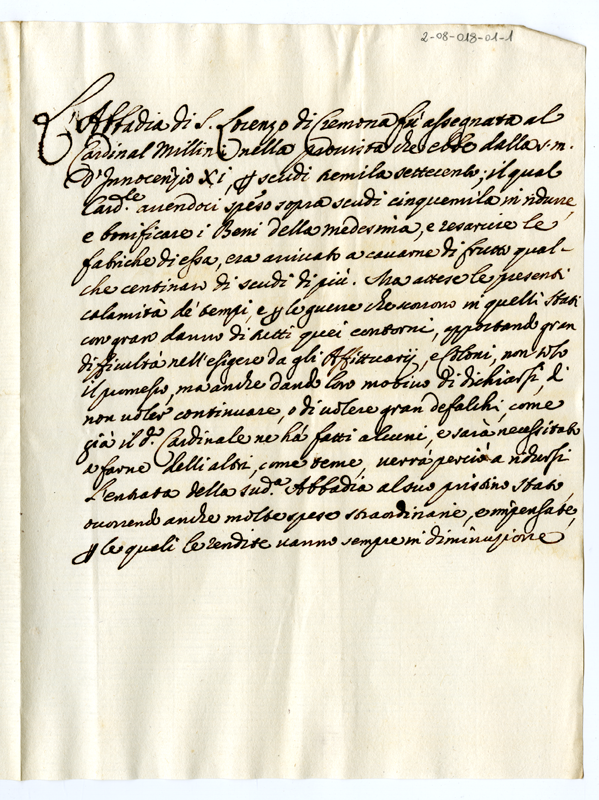 2-08-018-01-1
L'Abbadia di S. Lorenzo di Cremona fù assegnata al
Cardinal Millini nella provista che ebbe dalla s. m.
d'Innocenzio XI, p scudi tremila settecento; il qual
Card.le avendoci speso sopra scudi cinquemila in ridurre,
e bonificare i Beni della medesima, e resarcire le
fabriche di essa, era arrivato a cavarne di frutto qual-
che centinaro di scudi di più. Ma attese le presenti
calamità de' tempi, e p le guerre che corrono in quelli Stati
con gran danno di tutti quei contorni, apportando gran
difficultà nell'esigere da gli Affittuarij, e Coloni, non solo
il promesso, ma anche dando loro motivo di dichiarsi, di
non voler continuare, o di volere gran defalchi, come
già il d.o Cardinale ne hà fatti alcuni, e sarà necessitato
a farne delli altri, come teme, verrà perciò a ridursi
l'entrata della sud.a Abbadia al suo pristino stato
occorrendo anche molte spese straordinarie, e impensate,
p le quali le rendite vanno sempre in diminuzione